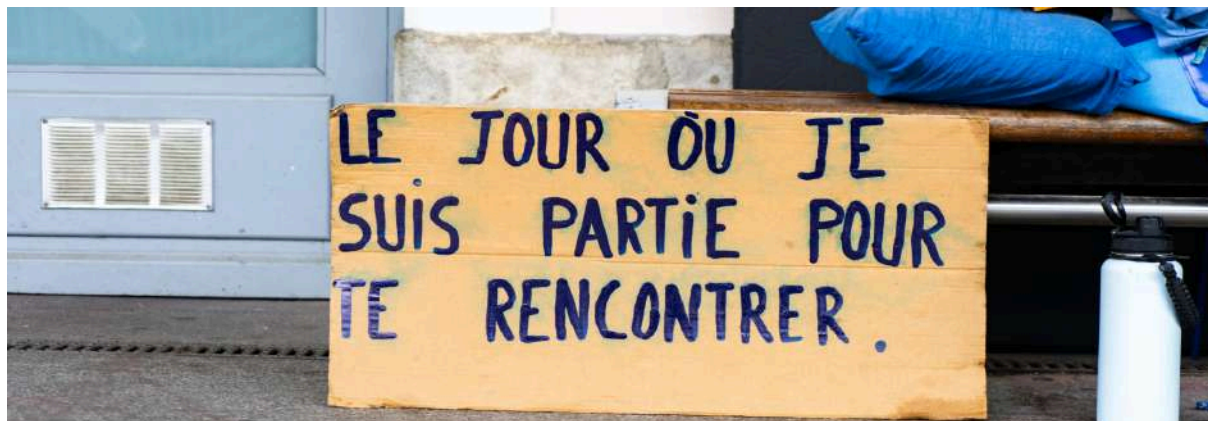 LE JOUR OÙ JE
SUiS PARTiE POUR
TE RENCONTRER.